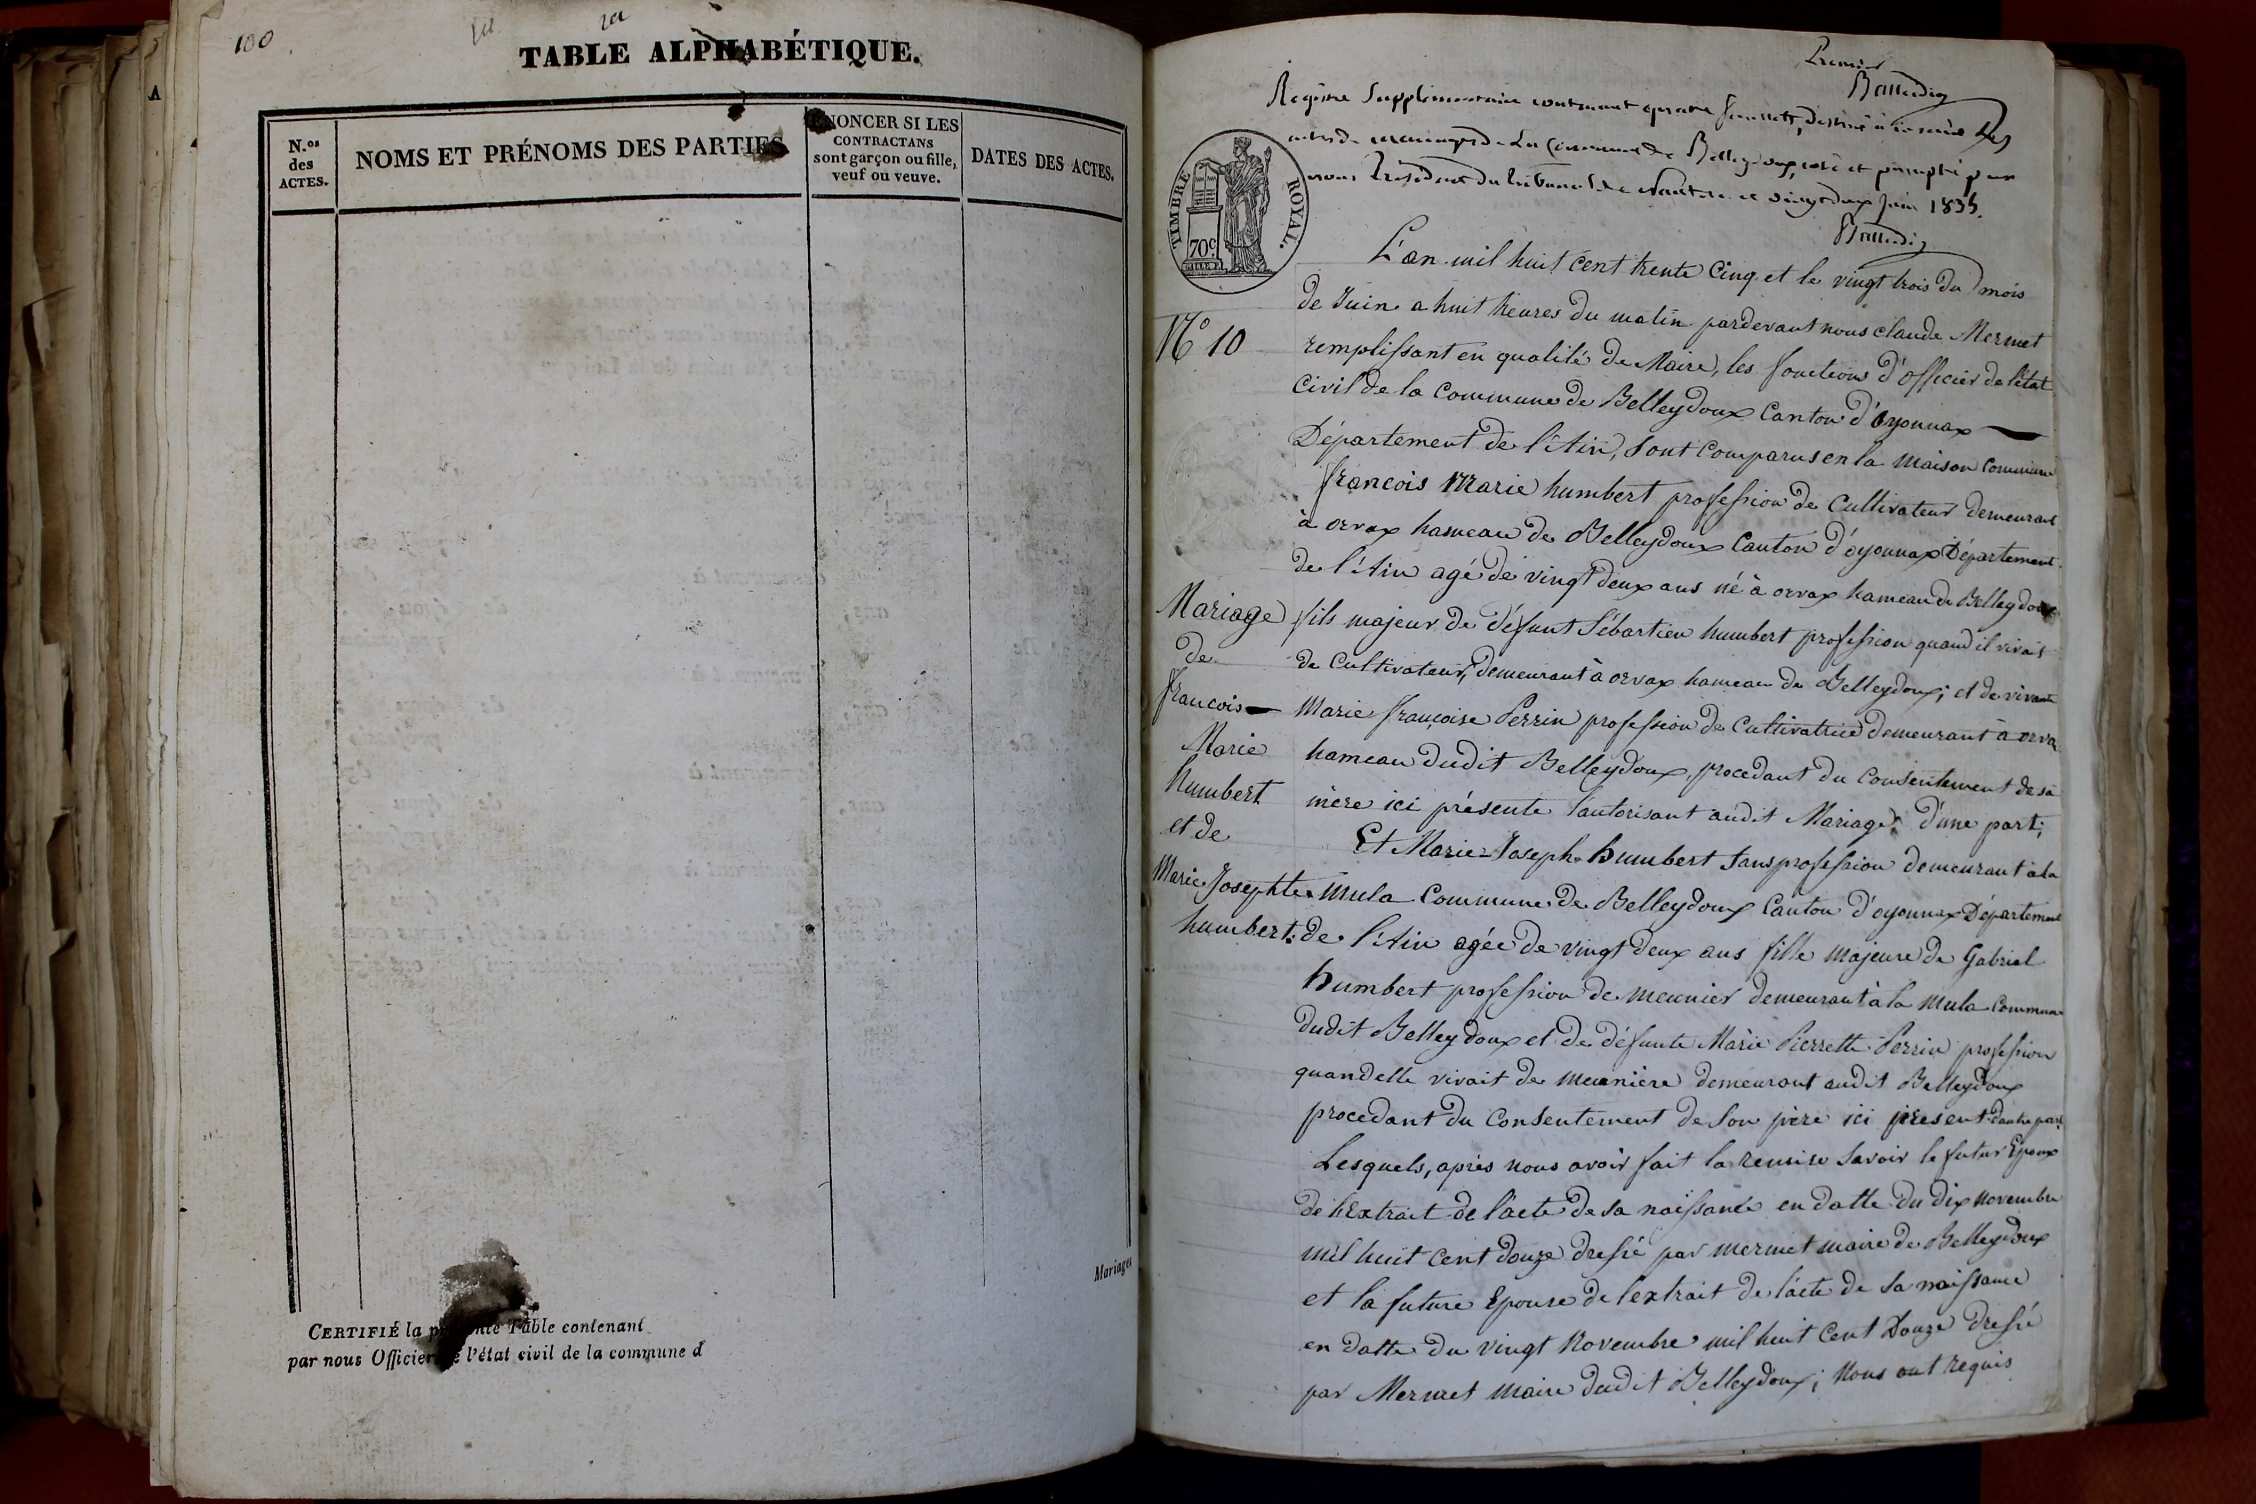 100
TABLE ALPHABÉTIQUE.
A
N.os des ACTES.
NOMS ET PRÉNOMS DES PARTIES
ÉNONCER SI LES
CONTRACTANS
sont garçon ou fille,
veuf ou veuve.
DATES DES ACTES.
Mariages
CERTIFIÉ la présente Table contenant
par nous Officier de l'état civil de la commune d
Premier
Registre Supplémentaire contenant quatre feuillets, destiné à inscrire les
actes de mariages de la Commune de Belleydoux, coté et paraphé par
nous Président du tribunal de Nantua le vingt deux juin 1835.
TIMBRE ROYAL.
70c
L'an mil huit cent trente cinq et le vingt trois du mois
de Juin a huit heures du matin pardevant nous claude Mermet
N° 10
remplissant en qualité de Maire, les fonctions d'officier de l'état
civil de la Commune de Belleydoux Canton d'oyonnax
Département de l'Ain, sont comparus en la maison commune
françois Marie humbert profession de Cultivateur demeurant
à orvax hameau de Belleydoux Canton d'oyonnax Département
de l'Ain agé de vingt deux ans né à orvax hameau de Belleydoux
fils majeur de défunt Sébastien humbert profession quand il vivait
de Cultivateur, demeurant à orvax hameau de Belleydoux; et de vivante
Marie françoise Perrin profession de Cultivatrice demeurant à orva
hameau dudit Belleydoux, procedant du consentement de sa
mère ici présente l'autorisant audit Mariage d'une part;
Et Marie Joseph humbert sans profession demeurant à la
mula Commune de Belleydoux Canton d'oyonnax Département
de l'Ain agée de vingt deux ans fille majeure de Gabriel
humbert profession de meunier demeurant à la mula commune
dudit Belleydoux et de défunte Marie Pierrette Perrin profession
quand elle vivait de meunière demeurant audit Belleydoux
procedant du consentement de son père ici présent d'autre part
Lesquels, après nous avoir fait la remise savoir le futur Epoux
de l'Extrait de l'acte de sa naissance en datte du dix novembre
mil huit cent douze dressé par mermet maire de Belleydoux
et la future Epouse de l'extrait de l'acte de sa naissance
en datte du vingt Novembre mil huit cent Douze dressé
par Mermet maire dudit Belleydoux; Nous ont requis
Mariage
de
françois
Marie
humbert
et de
Marie Josephte
humbert.